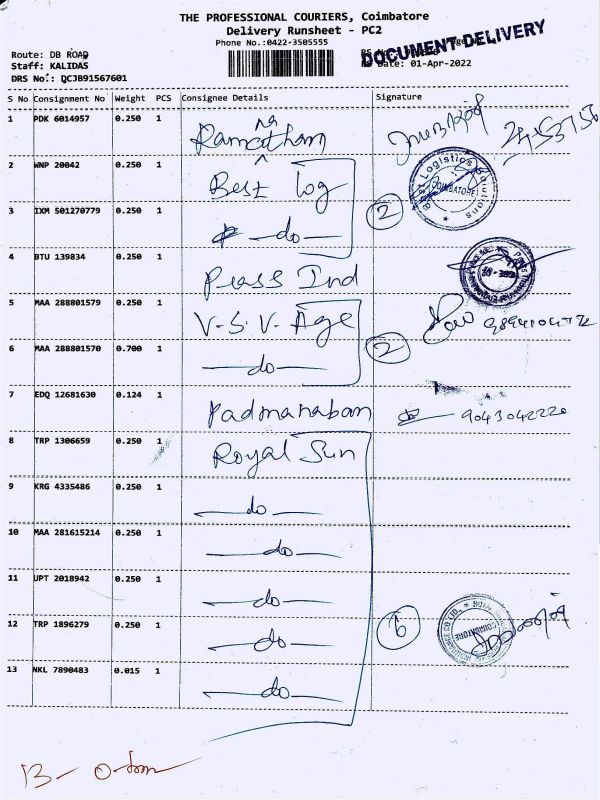 THE PROFESSIONAL COURIERS, Coimbatore
Delivery Runsheet - PC2
Phone No.:0422-3505555
DOCUMENT DELIVERY
Route: DB ROAD
Staff: KALIDAS
Date: 01-Apr-2022
DRS No.: DCJB91567601
S No Consignment No Weight PCS Consignee Details Signature
1 PDK 6014957 0.250 1 Ramanatham
2 WNP 20042 0.250 1 Best log
3 IXM 501270779 0.250 1 do
2
Best Logistics Solutions
COIMBATORE
4 BTU 139834 0.250 1 Press Ind
5 MAA 288801579 0.250 1 V.S.V. Age
6 MAA 288801570 0.700 1 do
2
7 EDQ 12681630 0.124 1 Padmanaban 9043042220
8 TRP 1306659 0.250 1 Royal Sun
9 KRG 4335486 0.250 1 do
10 MAA 281615214 0.250 1 do
11 UPT 2018942 0.250 1 do
12 TRP 1896279 0.250 1 do
6
COIMBATORE
13 NKL 7890483 0.015 1 do
13 -